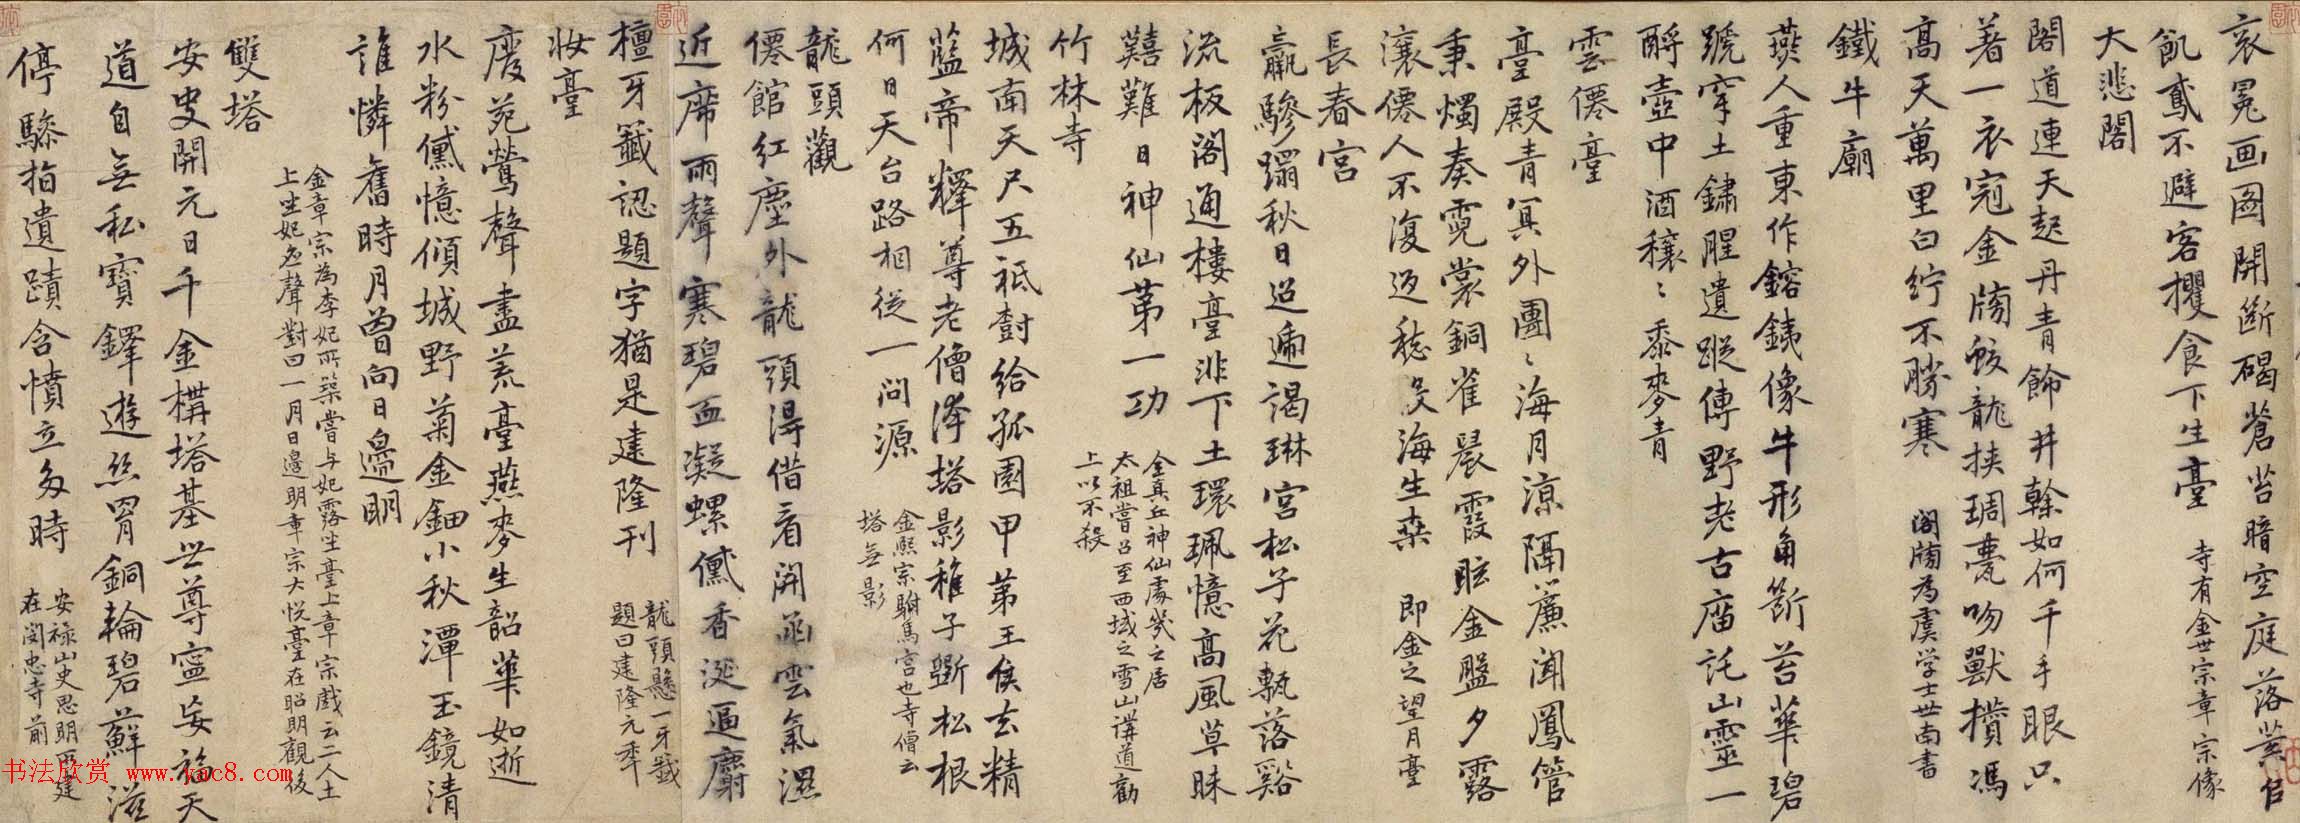 袞冕画圖開斷碣蒼苔暗空庭落葉
飢鳶不避客攫食下生臺 寺有金世宗章宗像
大悲閣
閣道連天起丹青飾井榦如何千手眼只
著一衣冠金牓蛟龍挾琱甍吻獸攢馮
高天萬里白紵不勝寒 閣牓為虞学士世南書
鐵牛廟
燕人重東作鎔鐵像牛形角斷苔華碧
蹏穿土鏽腥遺蹤傳野老古廟託山靈一
酹壺中酒穰〻黍麥青
雲僊臺
臺殿青冥外團〻海月涼隔簾聞鳳管
秉燭奏霓裳銅雀晨霞眩金盤夕露
瀼僊人不復返愁海生桑 即金之望月臺
長春宮
羸驂躡秋日迢遞謁琳宮松子花甎落谿
流板閣通樓臺非下土環珮憶高風草昧
囏難日神仙第一功 全真丘神仙處幾之居
太祖嘗召至西域之雪山講道勸
上以不殺
竹林寺
城南天尺五祗樹給孤園甲第王侯去精
藍帝釋尊老僧泽塔影稚子斲松根
何日天台路相從一問源 金熙宗駙馬宮也寺僧云
塔無影
龍頭觀
僊館紅塵外龍頭得借看開函雲氣濕
近席雨聲寒碧血凝螺儻香涎逼麝
檀牙籤認題字猶是建隆刊 龍頭懸一牙籤
題曰建隆元年
妝臺
廢苑鶯聲盡荒臺燕麥生韶華如逝
水粉黛憶傾城野菊金鈿小秋潭玉鏡清
誰憐舊時月曾向日邊明
金章宗為李妃所築嘗与妃露坐臺上章宗戲云二人土
上坐妃应聲對曰一月日邊明章宗大悦臺在昭明觀後
雙塔
安史開元日千金構塔基世尊寧妄福天
道自無私寶鐸遊絲胃銅輪碧蘚滋
停驂指遺蹟含憤立多時 安禄山史思明所建
在閔忠寺前
书法欣赏 www.yac8.com